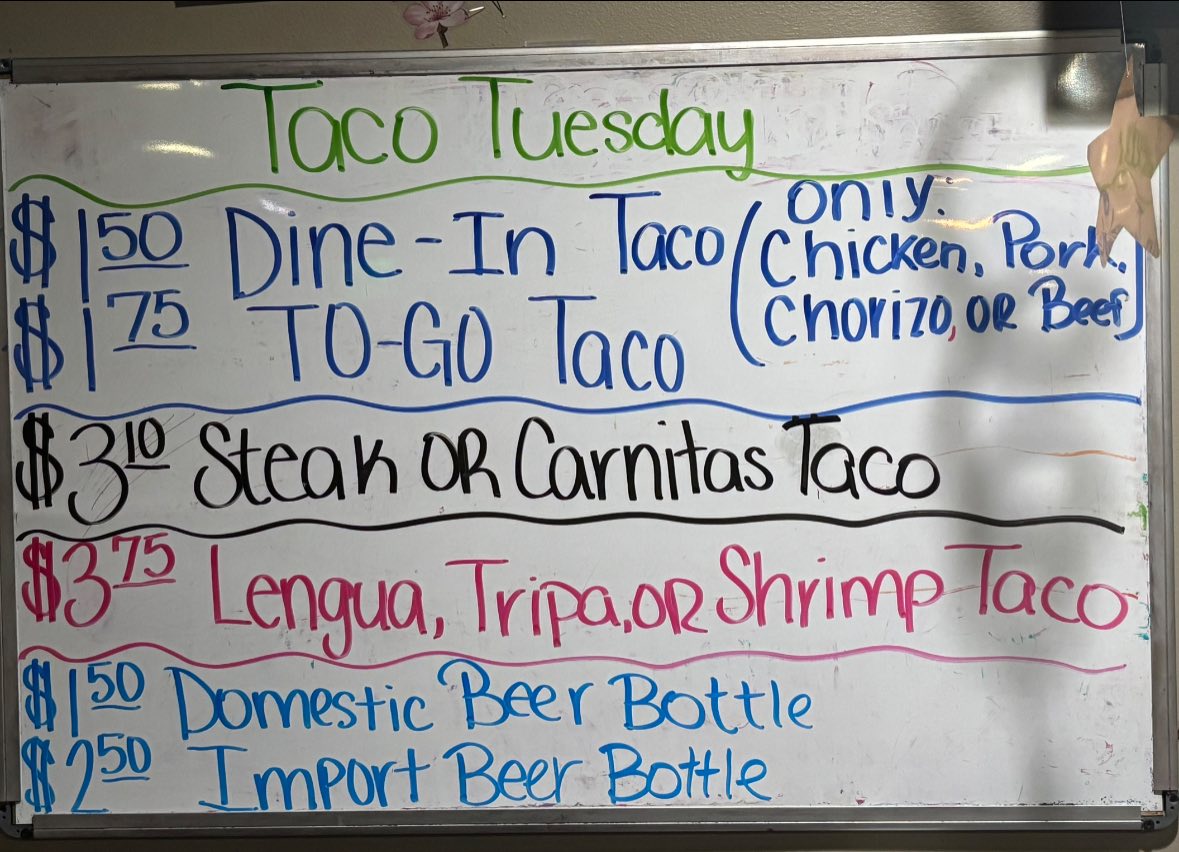 Taco Tuesday
$1.50 Dine-In Taco (only:
Chicken, Pork,
$1.75 TO-GO Taco
Chorizo, OR Beef)
$3.10 Steak OR Carnitas Taco
$3.75 Lengua, Tripa, OR Shrimp Taco
$1.50 Domestic Beer Bottle
$2.50 Import Beer Bottle